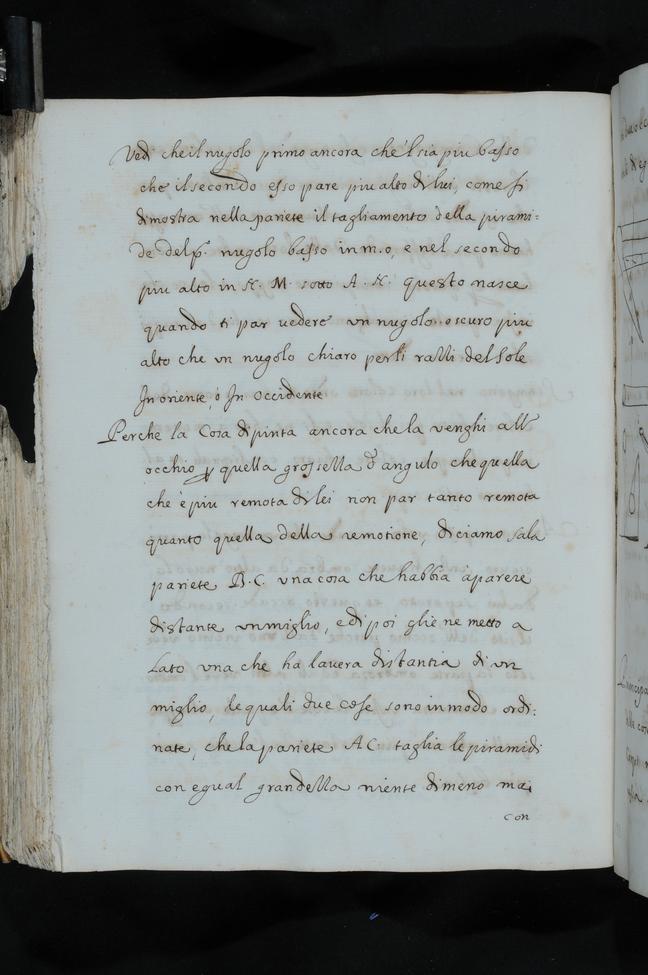 Vedi che il nugolo primo ancora che'l sia piu basso
che il secondo esso pare piu alto di lui, come si
dimostra nella pariete il tagliamento della pirami=
de del p.º nugolo basso in m.o, e nel secondo
piu alto in N. M. sotto A. N. questo nasce
quando ti par vedere vn nugolo oscuro piu
alto che vn nugolo chiaro perli razzi del Sole
In oriente, ò In occidente
Perche la Cosa dipinta ancora che la venghi all'
occhio p quella grossezza d'angulo che quella
che è piu remota di lei non par tanto remota
quanto quella della remotione, diciamo sula
pariete B.C. vna cosa che habbia à parere
distante vn miglio, e dipoi gliene metto a
Lato vna che ha la uera distantia di vn
miglio, le quali due cose sono in modo ordi:
nate, che la pariete A C taglia le piramidi
con egual grandezza niente dimeno mai
con